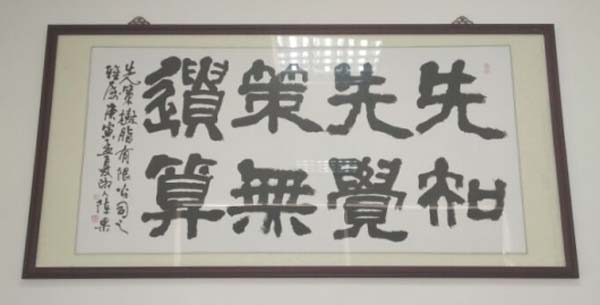 先知
先覺
策無
遺算
先策樹脂有限公司之
雅屬庚寅孟夏